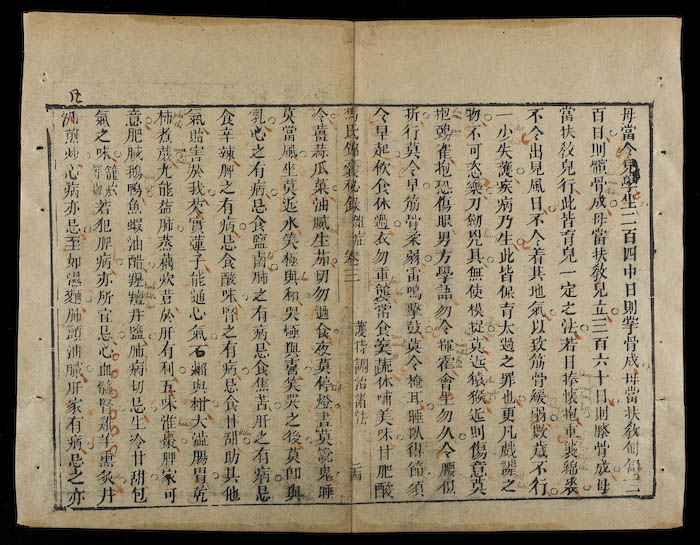 母當令兒學坐二百四十日則掌骨成母當扶敎匍匐三
百日則臏骨成母當扶敎兒立三百六十日則膝骨成母
當扶敎兒行此皆育兒一定之法若日捧懷抱重裘綿裘
不令出見風日不令着其地氣以致筋骨緩弱數歲不行
一少失護疾病乃生此皆保育太過之罪也更凡戲謔之
物不可恣樂刀劒兇具無使模捉莫近猿猴近則傷意莫
抱鷄雀抱恐傷眼男方學語勿令揮霍會坐勿久令腰似
折行莫令早筋骨柔弱雷鳴擊鼓莫令掩耳睡臥得節須
令早起飲食休過衣勿重襲常食菜蔬休哺美味甘肥酸
馮氏錦囊秘錄 雜症 卷三 護持調治諸法
冷薑蒜瓜菜油膩生茄切勿過食夜莫停燈晝莫說鬼睡
莫當風坐莫近水笑極與和哭極與驚笑哭之後莫卽與
乳心之有病忌食鹽鹵肺之有病忌食焦苦肝之有病忌
食辛辣脾之有病忌食酸味腎之有病忌食甘甜助其他
氣貽害於我芡實蓮子能通心氣石榴與柑大澁腸胃乾
柿煮蔗尤能益肺蒸藕炊薏於肝有利五味淮棗脾家可
意肥膩鵝鴨魚蝦油醋并鹽肺病切忌生冷甘甜包
氣之味籠炊等物若犯脾病亦所當忌心血髓腎雞羊熏炙并
酒煎炒心病亦忌至如濕麵肺頭油膩肝家有病忌之亦